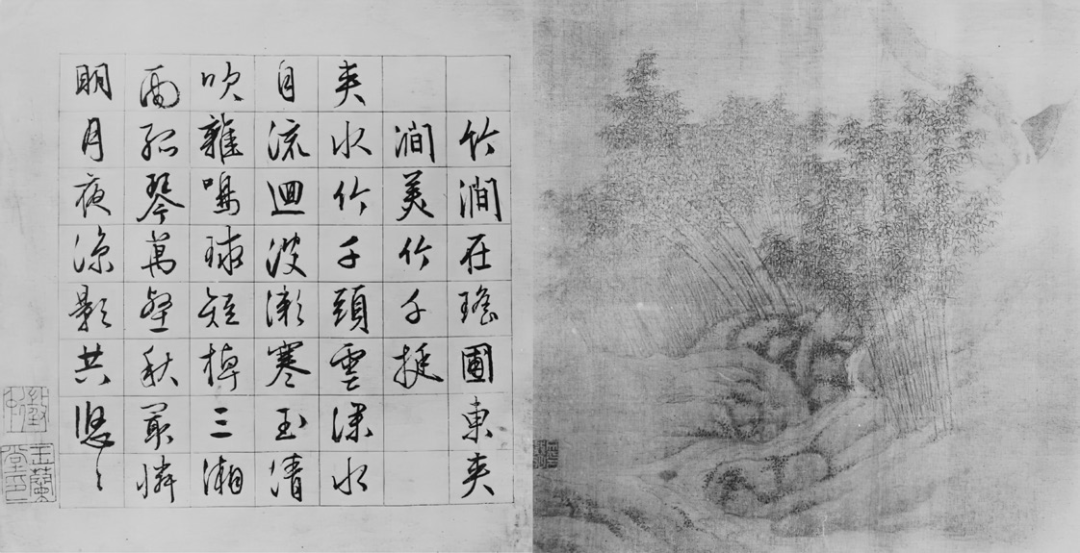 竹澗在瑤圃東夾
澗美竹千挺
夾水竹千頭雲深水
自流迴波漱寒玉清
吹雜鳴球短棹三湘
雨孤琴萬壑秋最憐
明月夜涼影共悠〻
玉蘭堂印